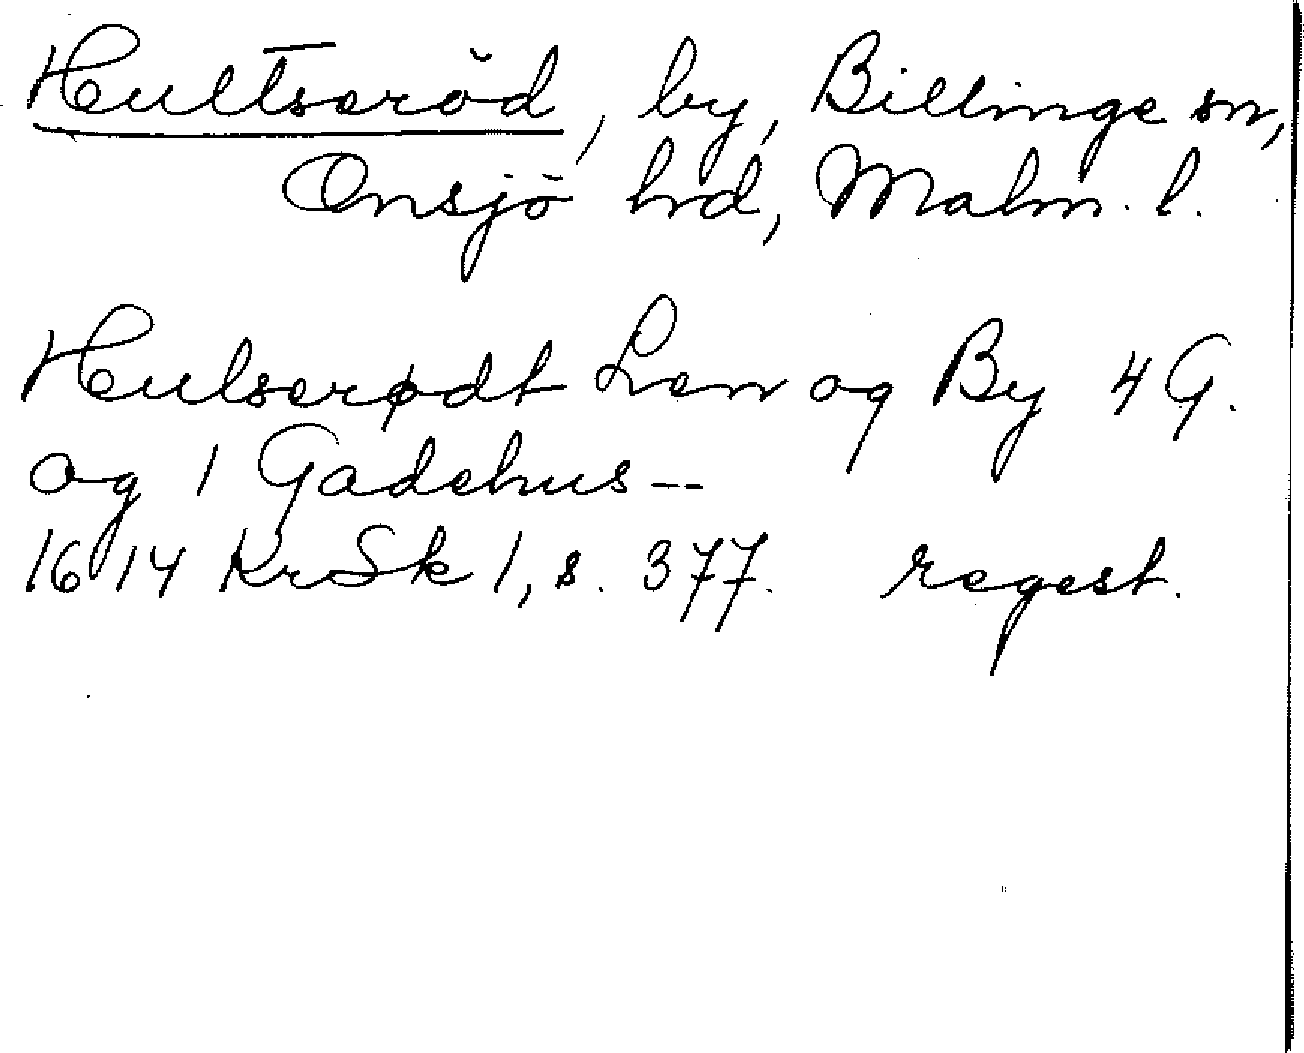 Hultseröd, by, Billinge sn,
Onsjö hd, Malm. l.
Hulserødt Len og By 4 G.
og 1 Gadehus --
1614 KrSk 1, s. 377. regest.